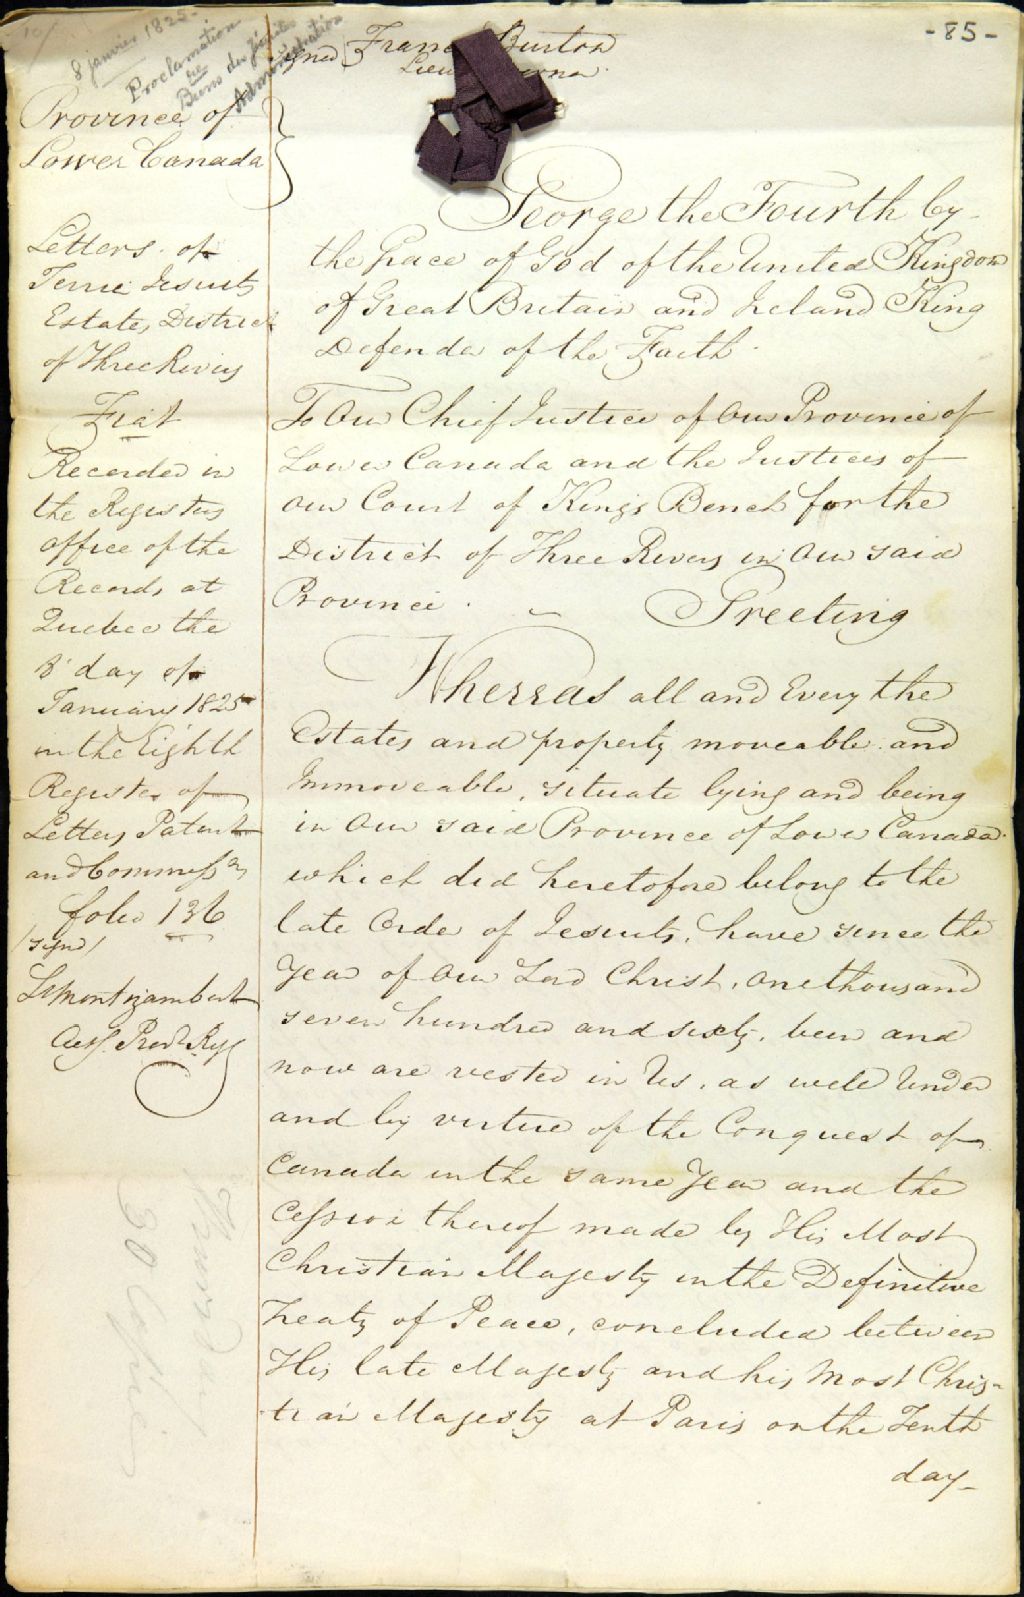 -85-
8 janvier 1825.
Proclamation
re
Biens des Jésuites
Administration
signed Burton
Province of
Lower Canada
Letters of
Terrier Jesuits
Estates, District
of Three Rivers
Fiat
Recorded in
the Registers
office of the
Records at
Quebec the
8' day of
January 1825
in the Eighth
Register of
Letters Patent
and Commissns
folio 136
/sign/
L Montizambert
Actg. Provl. Regr
George the Fourth by
the Grace of God of the United Kingdom
of Great Britain and Ireland King
Defender of the Faith.
To Our Chief Justice of Our Province of
Lower Canada and the Justices of
our Court of Kings Bench for the
District of Three Rivers in Our said
Province. Greeting
Whereas all and Every the
Estates and property moveable and
Immoveable, situate lying and being
in Our said Province of Lower Canada
which did heretofore belong to the
late Order of Jesuits, have since the
Year of Our Lord Christ, one thousand
seven hundred and sixty, been and
now are vested in Us, as well Under
and by virtue of the Conquest of
Canada in the same Year and the
Cession thereof made by His Most
Christian Majesty in the Definitive
Treaty of Peace, concluded between
His late Majesty and his Most Chris-
tian Majesty at Paris on the Tenth
day-